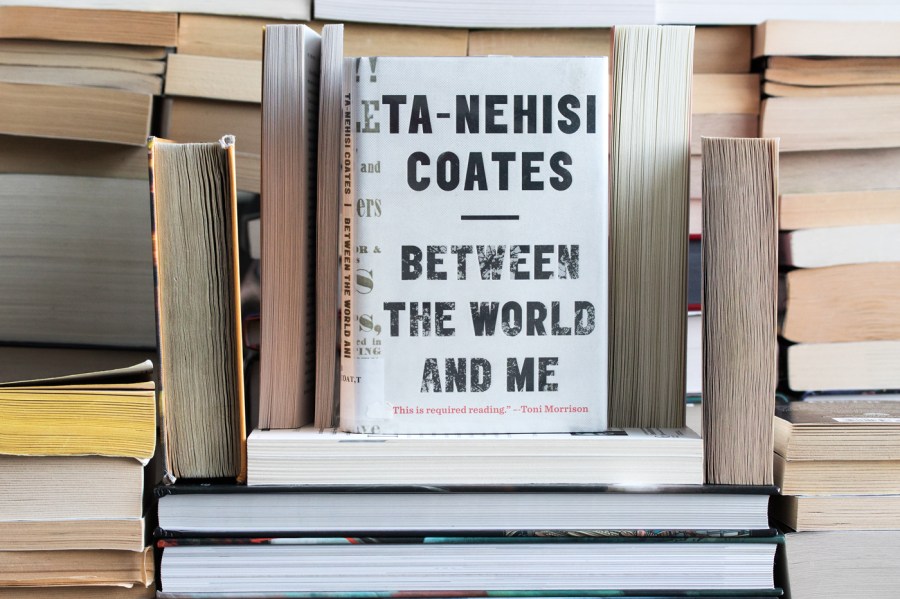 TA-NEHISI
COATES
BETWEEN
THE WORLD
AND ME
This is required reading." --Toni Morrison
TA-NEHISI COATES | BETWEEN THE WORLD AN
!!
LE
and
ers
OR &
S
S,
ed in
ING
DAT,T